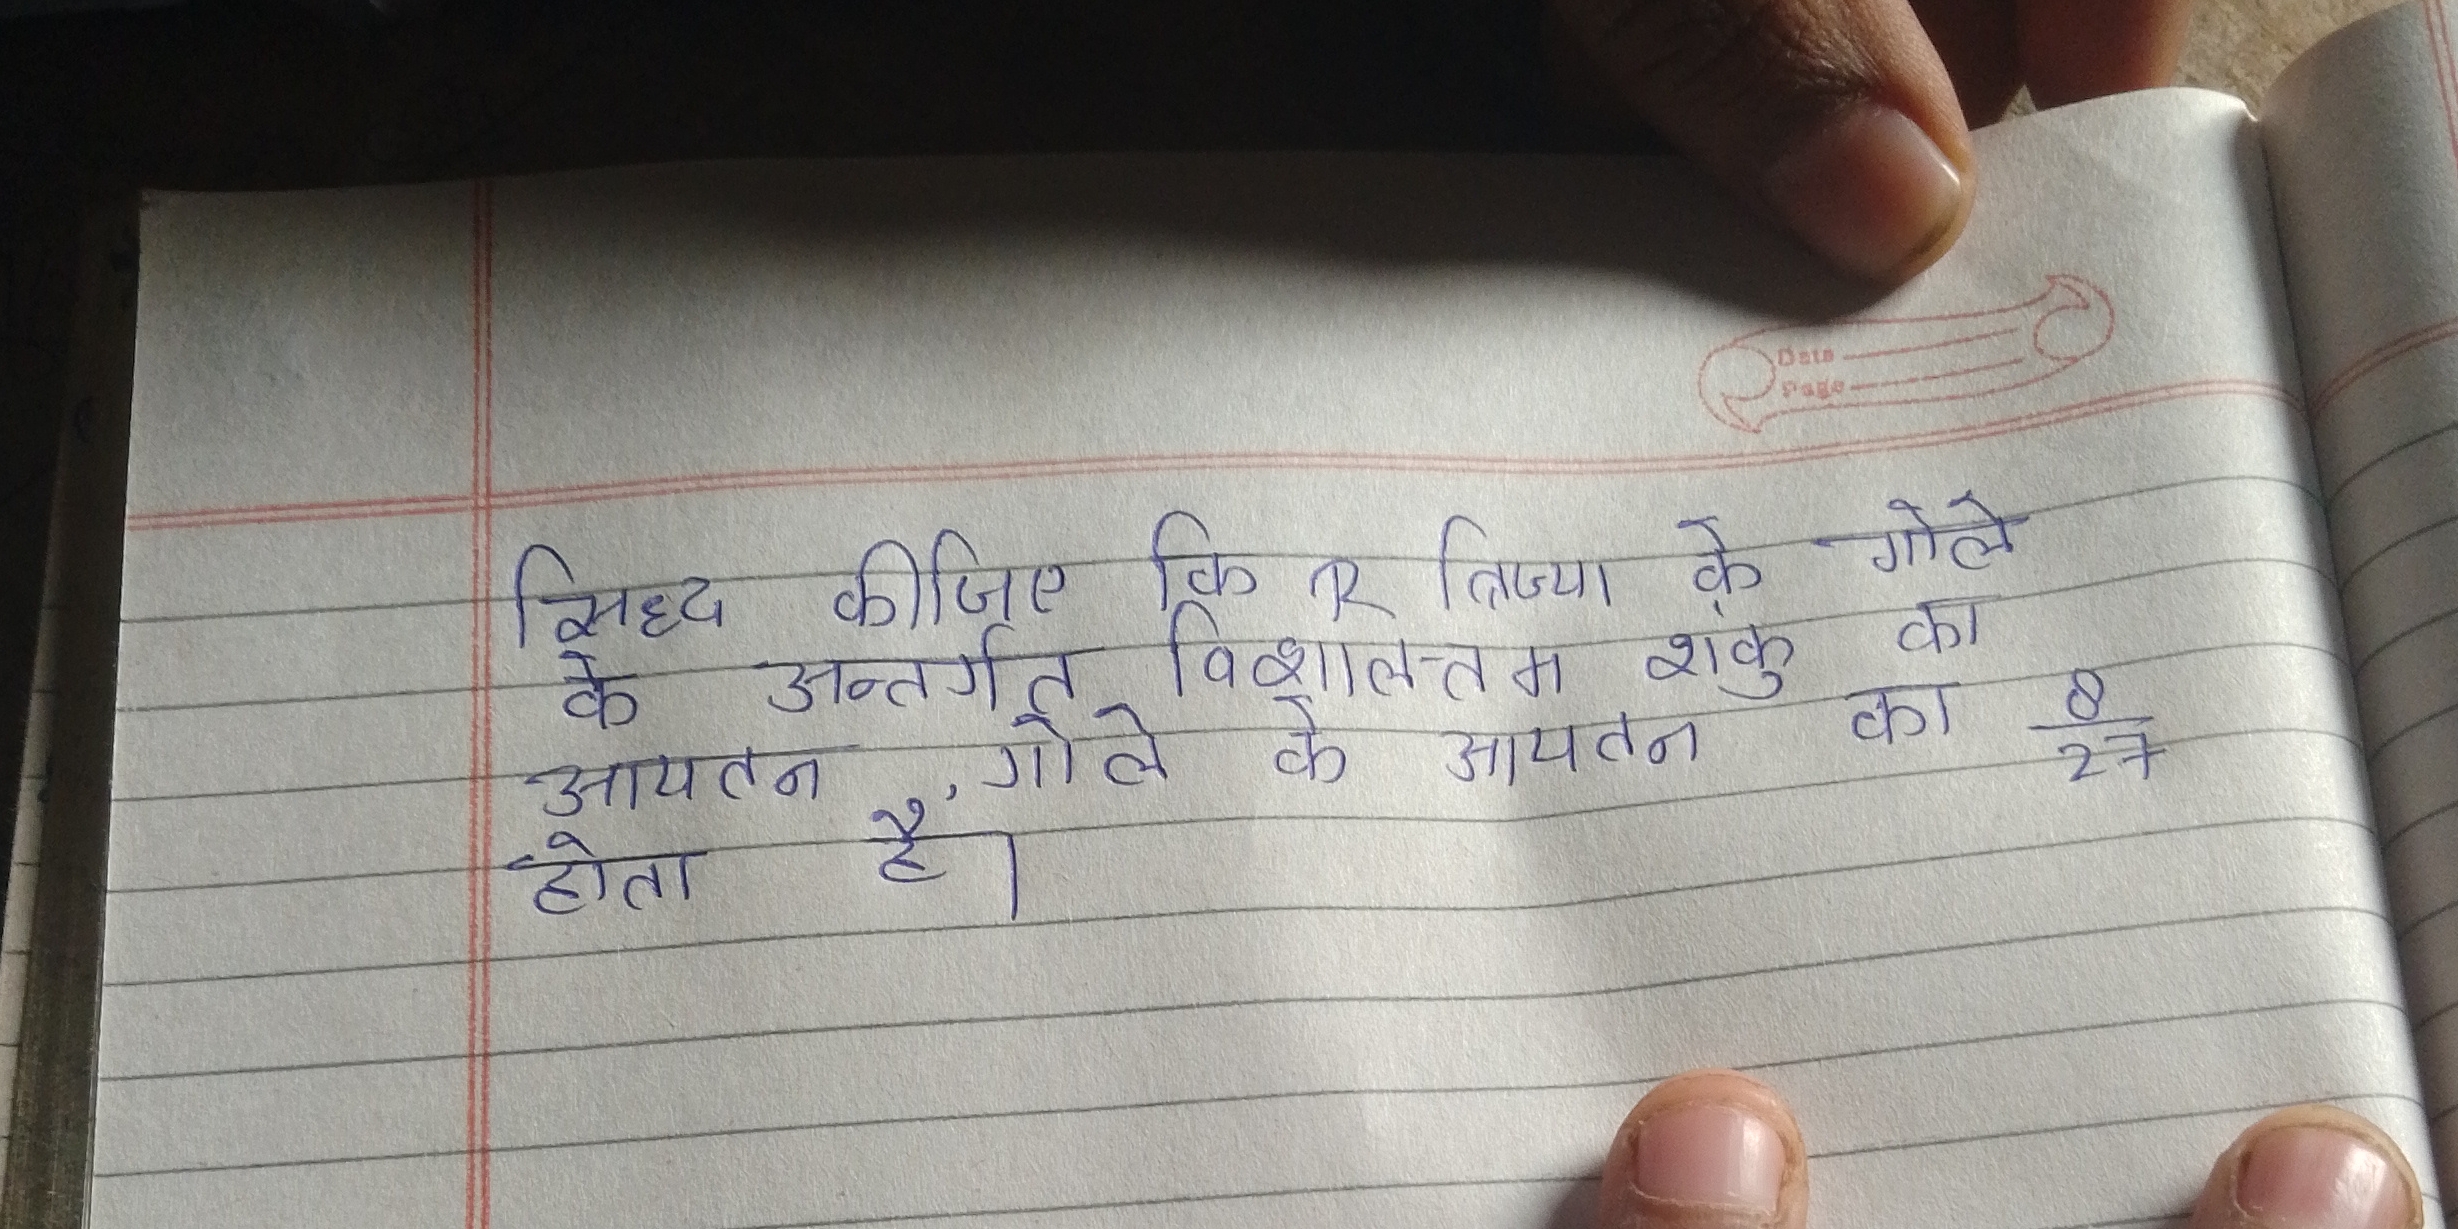 Date
Page
सिद्ध कीजिए कि R त्रिज्या के गोले
के अन्तर्गत विशालतम शंकु का
आयतन, गोले के आयतन का 8/27
होता है।